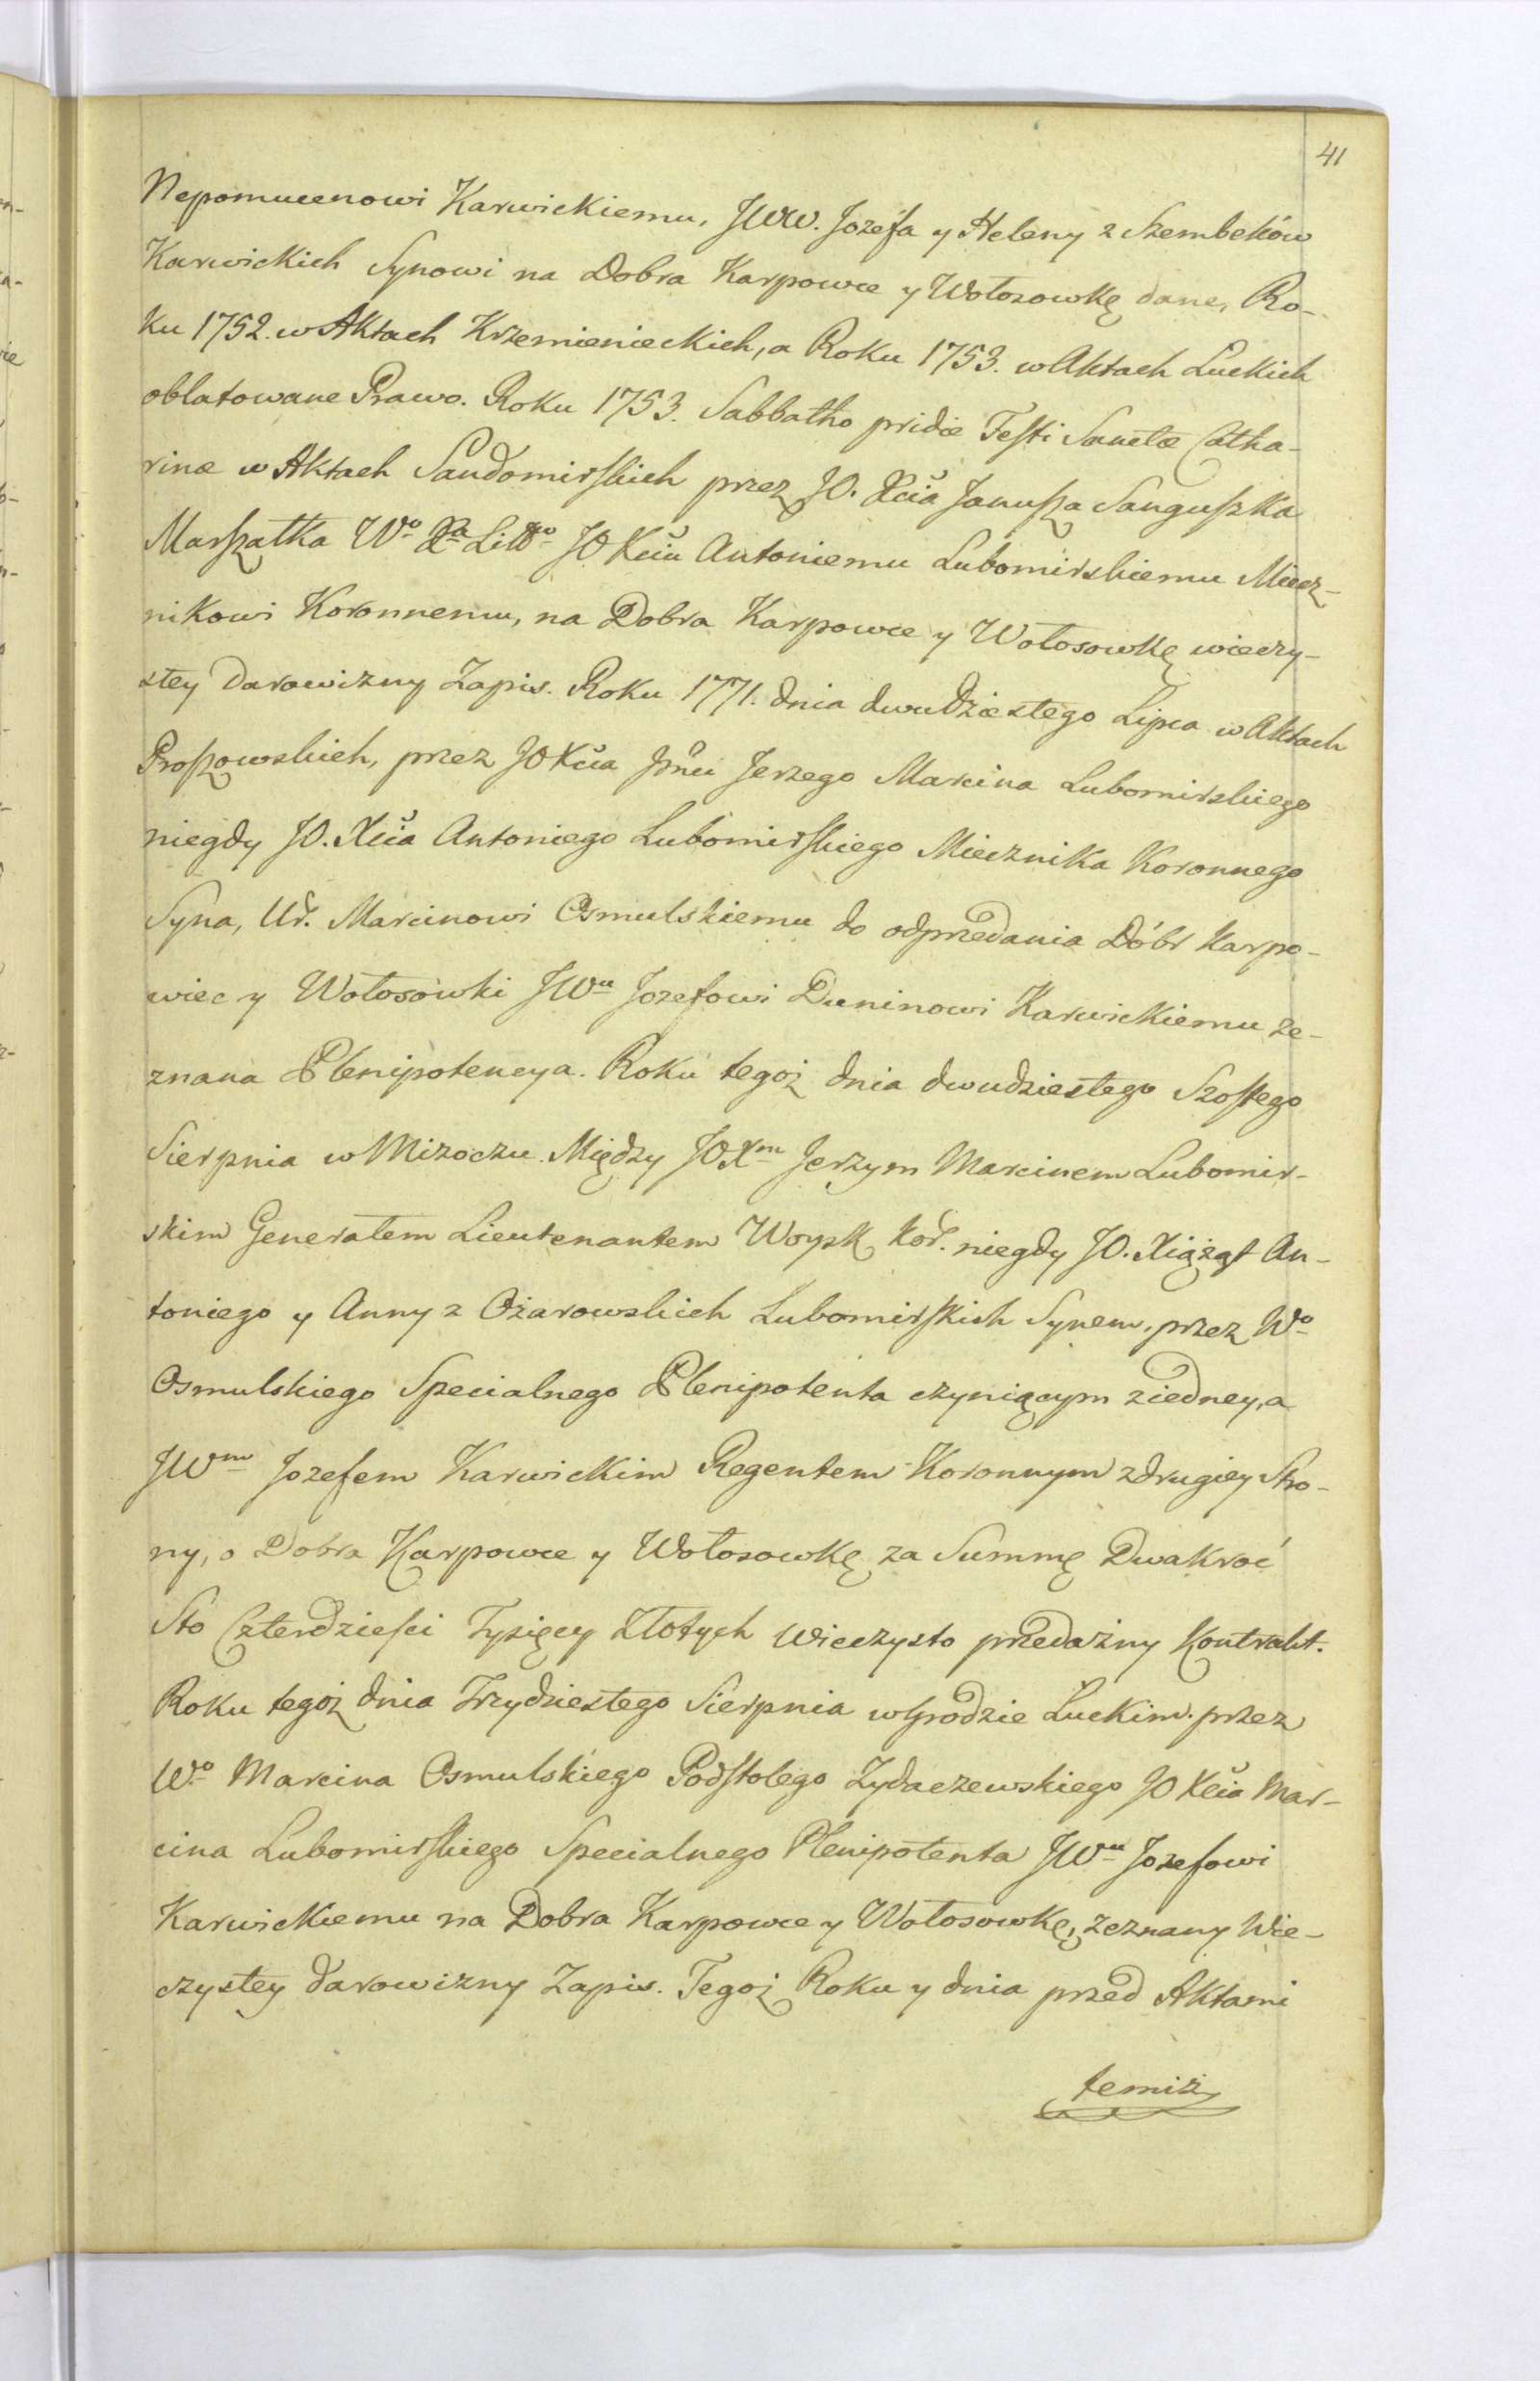 41
Nepomucenowi Karwickiemu, JWW. Jozefa y Heleny z Szembeków
Karwickich Synowi na Dobra Karpowce y Wołosowkę dane, Ro-
ku 1752. w Aktach Krzemienieckich, a Roku 1753. w Aktach Łuckich
oblatowane Prawo. Roku 1753. Sabbatho pridie Festi Sanctæ Catha-
rinæ w Aktach Sandomirskich przez JO. Xcia Janusza Sanguszka
Marszałka Wo Xa Littgo JO Xciu Antoniemu Lubomirskiemu Miecz-
nikowi Koronnemu, na Dobra Karpowce y Wołosowkę wieczy-
stey Darowizny Zapis. Roku 1771. dnia dwudziestego Lipca w Aktach
Proszowskich, przez JO Xcia Jerzego Marcina Lubomirskiego
niegdy JO. Xcia Antoniego Lubomirskiego Miecznika Koronnego
Syna, Ur. Marcinowi Osmulskiemu do odprzedania Dóbr Karpo-
wiec y Wołosowki JWu Jozefowi Duninowi Karwickiemu ze-
znana Plenipotencya. Roku tegoż dnia dwudziestego Szostego
Sierpnia w Mizoczu. Między JOXm Jerzym Marcinem Lubomir-
skim Generałem Lieutenantem Woysk kor. niegdy JO. Xiążąt An-
toniego y Anny z Ożarowskich Lubomirskich Synem, przez Wo
Osmulskiego Specialnego Plenipotenta czyniącym ziedney, a
JWm Jozefem Karwickim Regentem Koronnym zdrugiey Stro-
ny, o Dobra Karpowce y Wołosowkę za Summę Dwakroć
Sto Czterdziesci Tysięcy Złotych wieczysto przedażny Kontrakt.
Roku tegoż dnia Trzydziestego Sierpnia w Grodzie Łuckim. przez
Wo Marcina Osmulskiego Podstolego Zydaczewskiego JO Xcia Mar-
cina Lubomirskiego Specialnego Plenipotenta JWu Jozefowi
Karwickiemu na Dobra Karpowce y Wołosowkę, zeznany Wie-
czystey Darowizny Zapis. Tegoż Roku y dnia przed Aktami
temiż